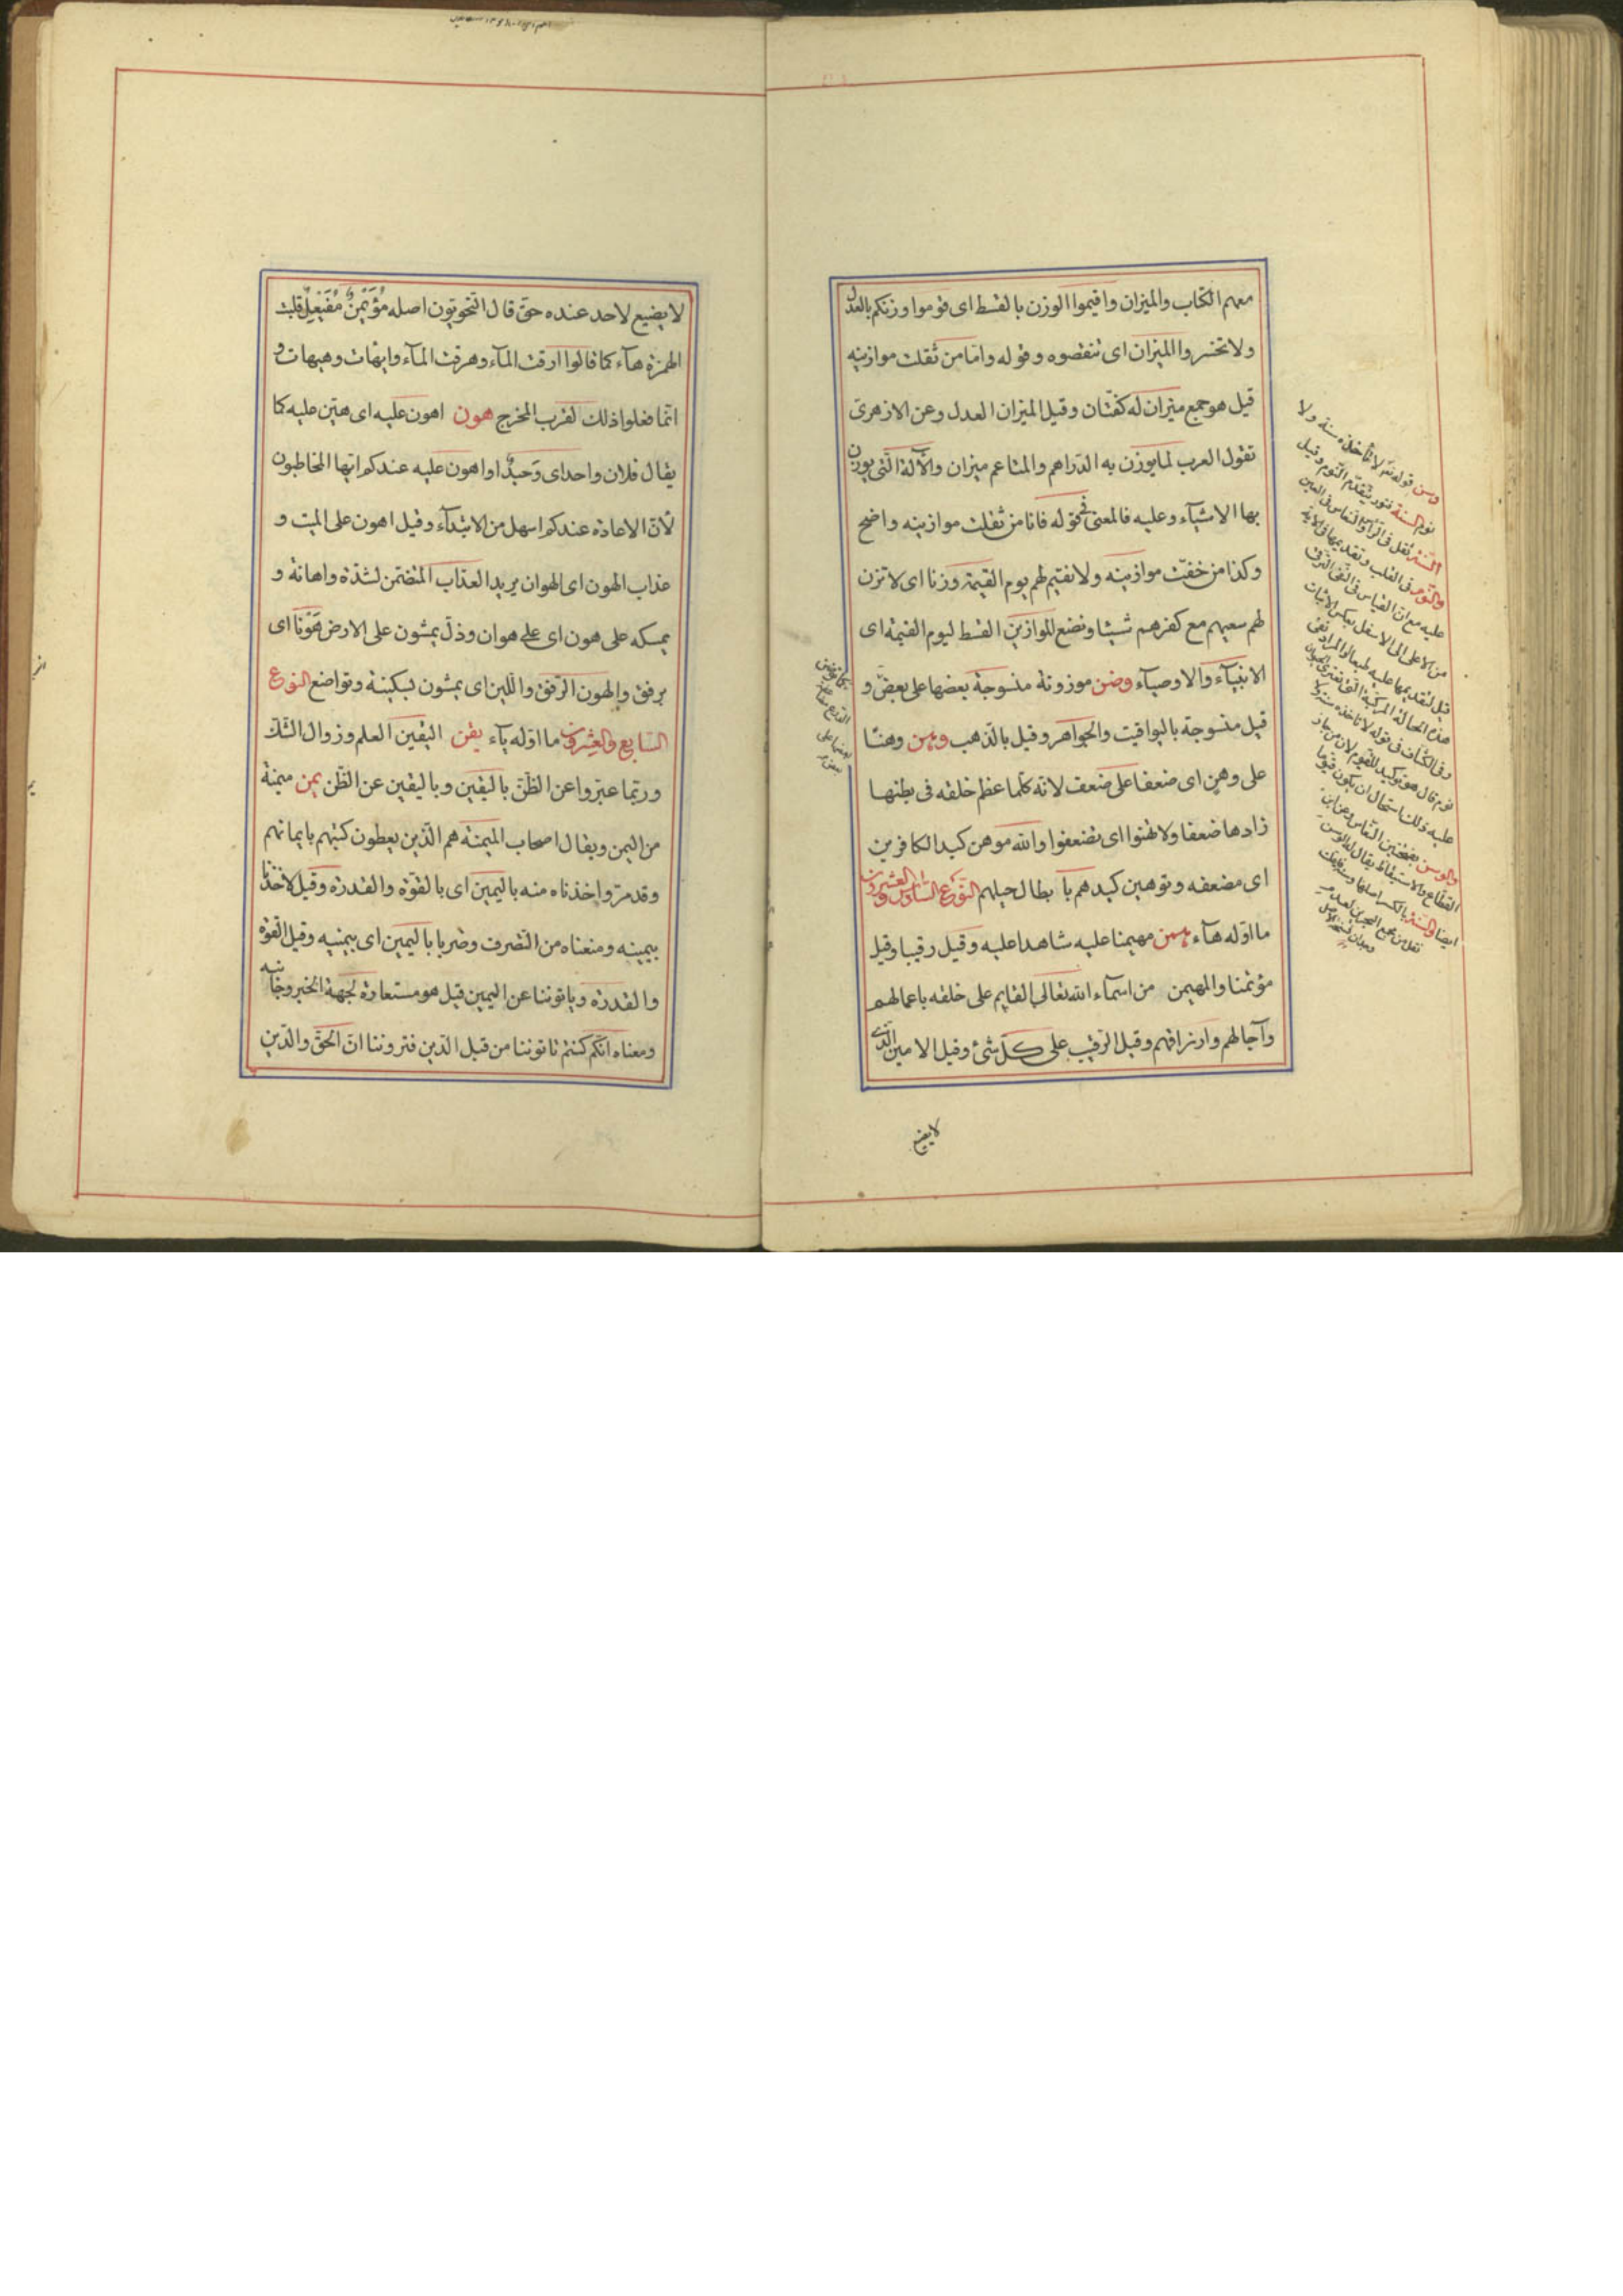 معهم الكتاب والميزان واقيموا الوزن بالقسط اى قوموا وزنكم بالعدل
ولا تخسروا الميزان اى تنقصوه وقوله واما من ثقلت موازينه
قيل هو جمع ميزان له كفتان وقيل الميزان العدل وعن الازهرى
تقول العرب لما يوزن به الدراهم والمتاع ميزان والآلة التى يوزن
بها الاشيآء وعليه فالمعنى فى قوله فاما من ثقلت موازينه واضح
وكذا من خفت موازينه ولا نقيم لهم يوم القيمة وزنا اى لا تزن
لهم سعيهم مع كفرهم شيئا ونضع الموازين القسط ليوم القيمة اى
الانبيآء والاوصيآء وضن موزونة منسوجة بعضها على بعض و
قيل منسوجة باليواقيت والجواهر وقيل بالذهب وهن وهنا
على وهن اى ضعفا على ضعف لانه كلما عظم خلقه فى بطنها
زادها ضعفا ولا تهنوا اى تضعفوا والله موهن كيد الكافرين
اى مضعفه وتوهين كيدهم با بطال حيلهم النوع السادس والعشرون
ما اوله هآء هيمن مهيمنا عليه شاهدا عليه وقيل رقيبا وقيل
مؤتمنا والمهيمن من اسمآء الله تعالى القايم على خلقه باعمالهم
وآجالهم وارزاقهم وقيل الرقيب على كل شئ وقيل الامين الذى
لا يضيع
وسن قوله تعالى لا تأخذه سنة ولا
نوم السنة فتور يتقدم النوم وقيل
السنة ثقل فى الراس والنعاس فى العين
والنوم فى القلب وتقديمها فى الاية
عليه مع ان القياس فى النفى الترقى
من الاعلى الى الاسفل بعكس الاثبات
قيل لتقديمها عليه طبعا والمراد نفى
هذه الحالة المركبة التى تعترى الحيوان
وفى الكشاف فى قوله لا تاخذه سنة ولا
نوم قال هو توكيد للقيوم لان من جاز
عليه ذلك استحال ان يكون قيوما
والوسن بفتحتين النعاس وعن ابن
ايضا والسنة بالكسر اصلها وسنة
لا يضيع لاحد عنده حق قال النحويون اصله مؤيمن مفيعل قلبت
الهمزة هآء كما قالوا ارقت المآء وهرقت المآء وايهات وهيهات و
انما فعلوا ذلك لقرب المخرج هون اهون عليه اى هين عليه كما
يقال فلان واحد اى وحيد او اهون عليه عندكم ايها المخاطبون
لأن الاعادة عندكم اسهل من الابتدآء وقيل اهون على الميت و
عذاب الهون اى الهوان يريد العذاب المتضمن لشدة واهانة و
يمسكه على هون اى على هوان وذل يمشون على الارض هونا اى
برفق والهون الرفق واللين اى يمشون بسكينة وتواضع النوع
السابع والعشرون ما اوله يآء يقن اليقين العلم وزوال الشك
وربما عبروا عن الظن باليقين وباليقين عن الظن يمن ميمنة
من اليمن ويقال اصحاب الميمنة هم الذين يعطون كتبهم بايمانهم
وقد مر واخذناه منه باليمين اى بالقوة والقدرة وقيل لاخذنا
بيمينه ومنعناه من التصرف وضربا باليمين اى بيمينه وقيل القوة
والقدرة وياتوننا عن اليمين قيل هو مستعارة لجهة الخير وجانبه
ومعناه انكم كنتم تاتوننا من قبل الدين فتروننا ان الحق والدين